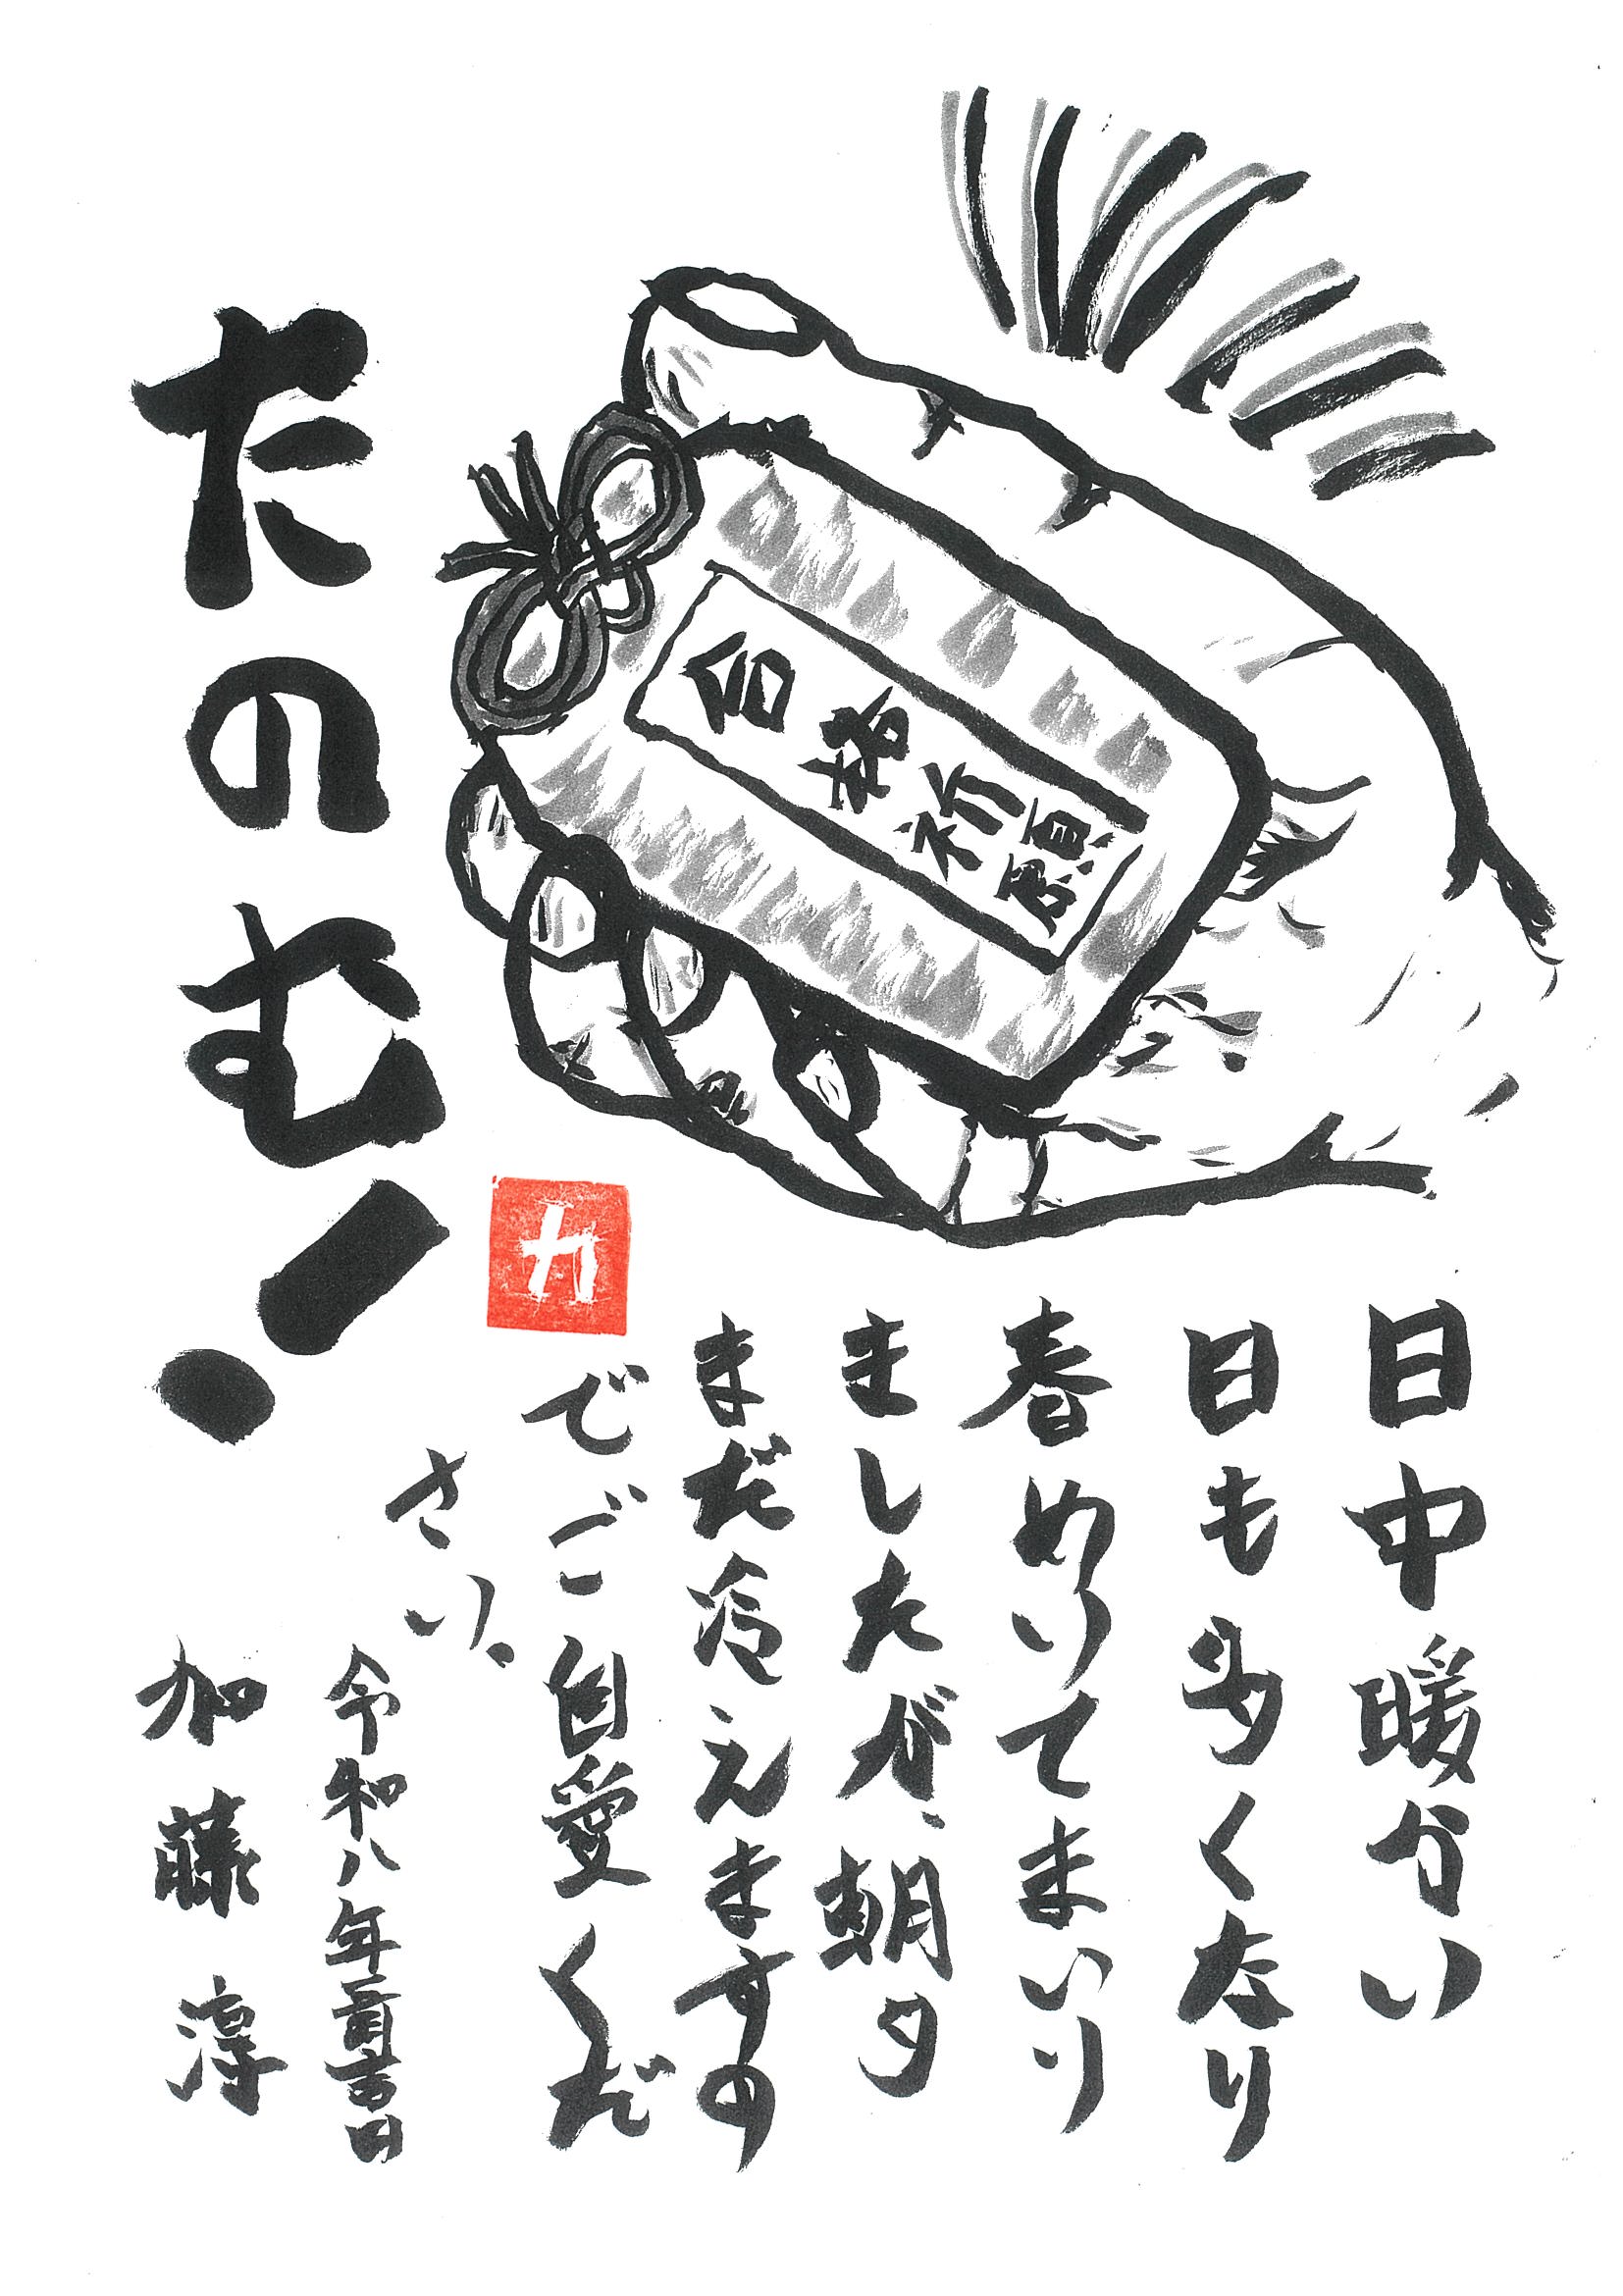 合格祈願
たのむ！
日中暖かい
日も多くなり
春めいてまいり
ましたが、朝夕
まだ冷えますの
でご自愛くだ
さい。
令和八年二月吉日
加藤淳
カ